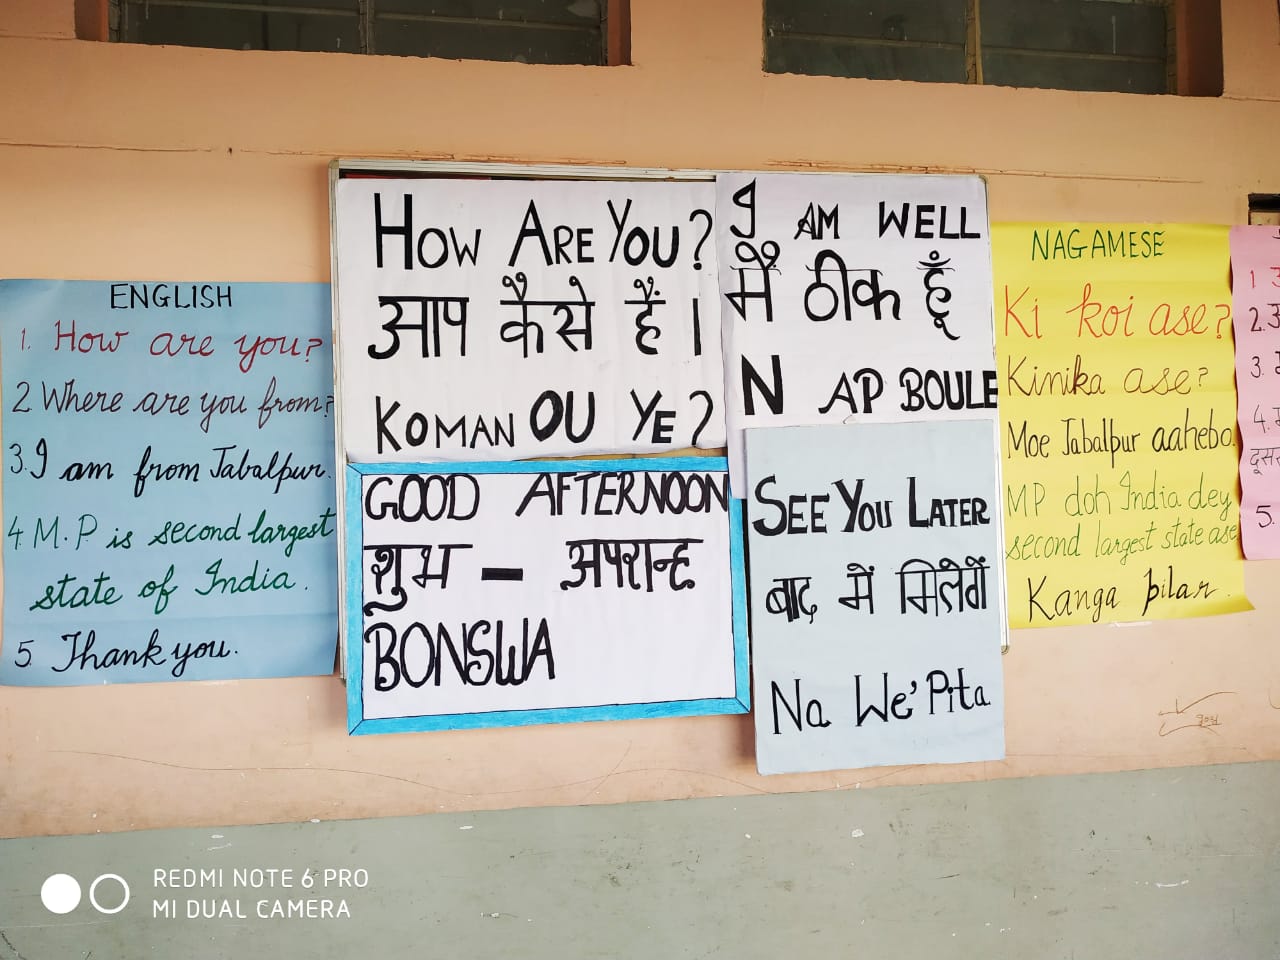 ENGLISH
1. How are you?
2 Where are you from?
3. I am from Jabalpur.
4. M.P is second largest
state of India.
5. Thank you.
HOW ARE YOU?
आप कैसे हैं ।
KOMAN OU YE?
I AM WELL
मैं ठीक हूँ
N AP BOULE
GOOD AFTERNOON
शुभ - अपरान्ह
BONSWA
SEE YOU LATER
बाद में मिलेगें
Na We' Pita
NAGAMESE
Ki koi ase?
Kinika ase?
Moe Jabalpur aahebo.
MP doh India dey
second largest state ase
Kanga pilar.
1
2.
3.
4.
5.
REDMI NOTE 6 PRO
MI DUAL CAMERA